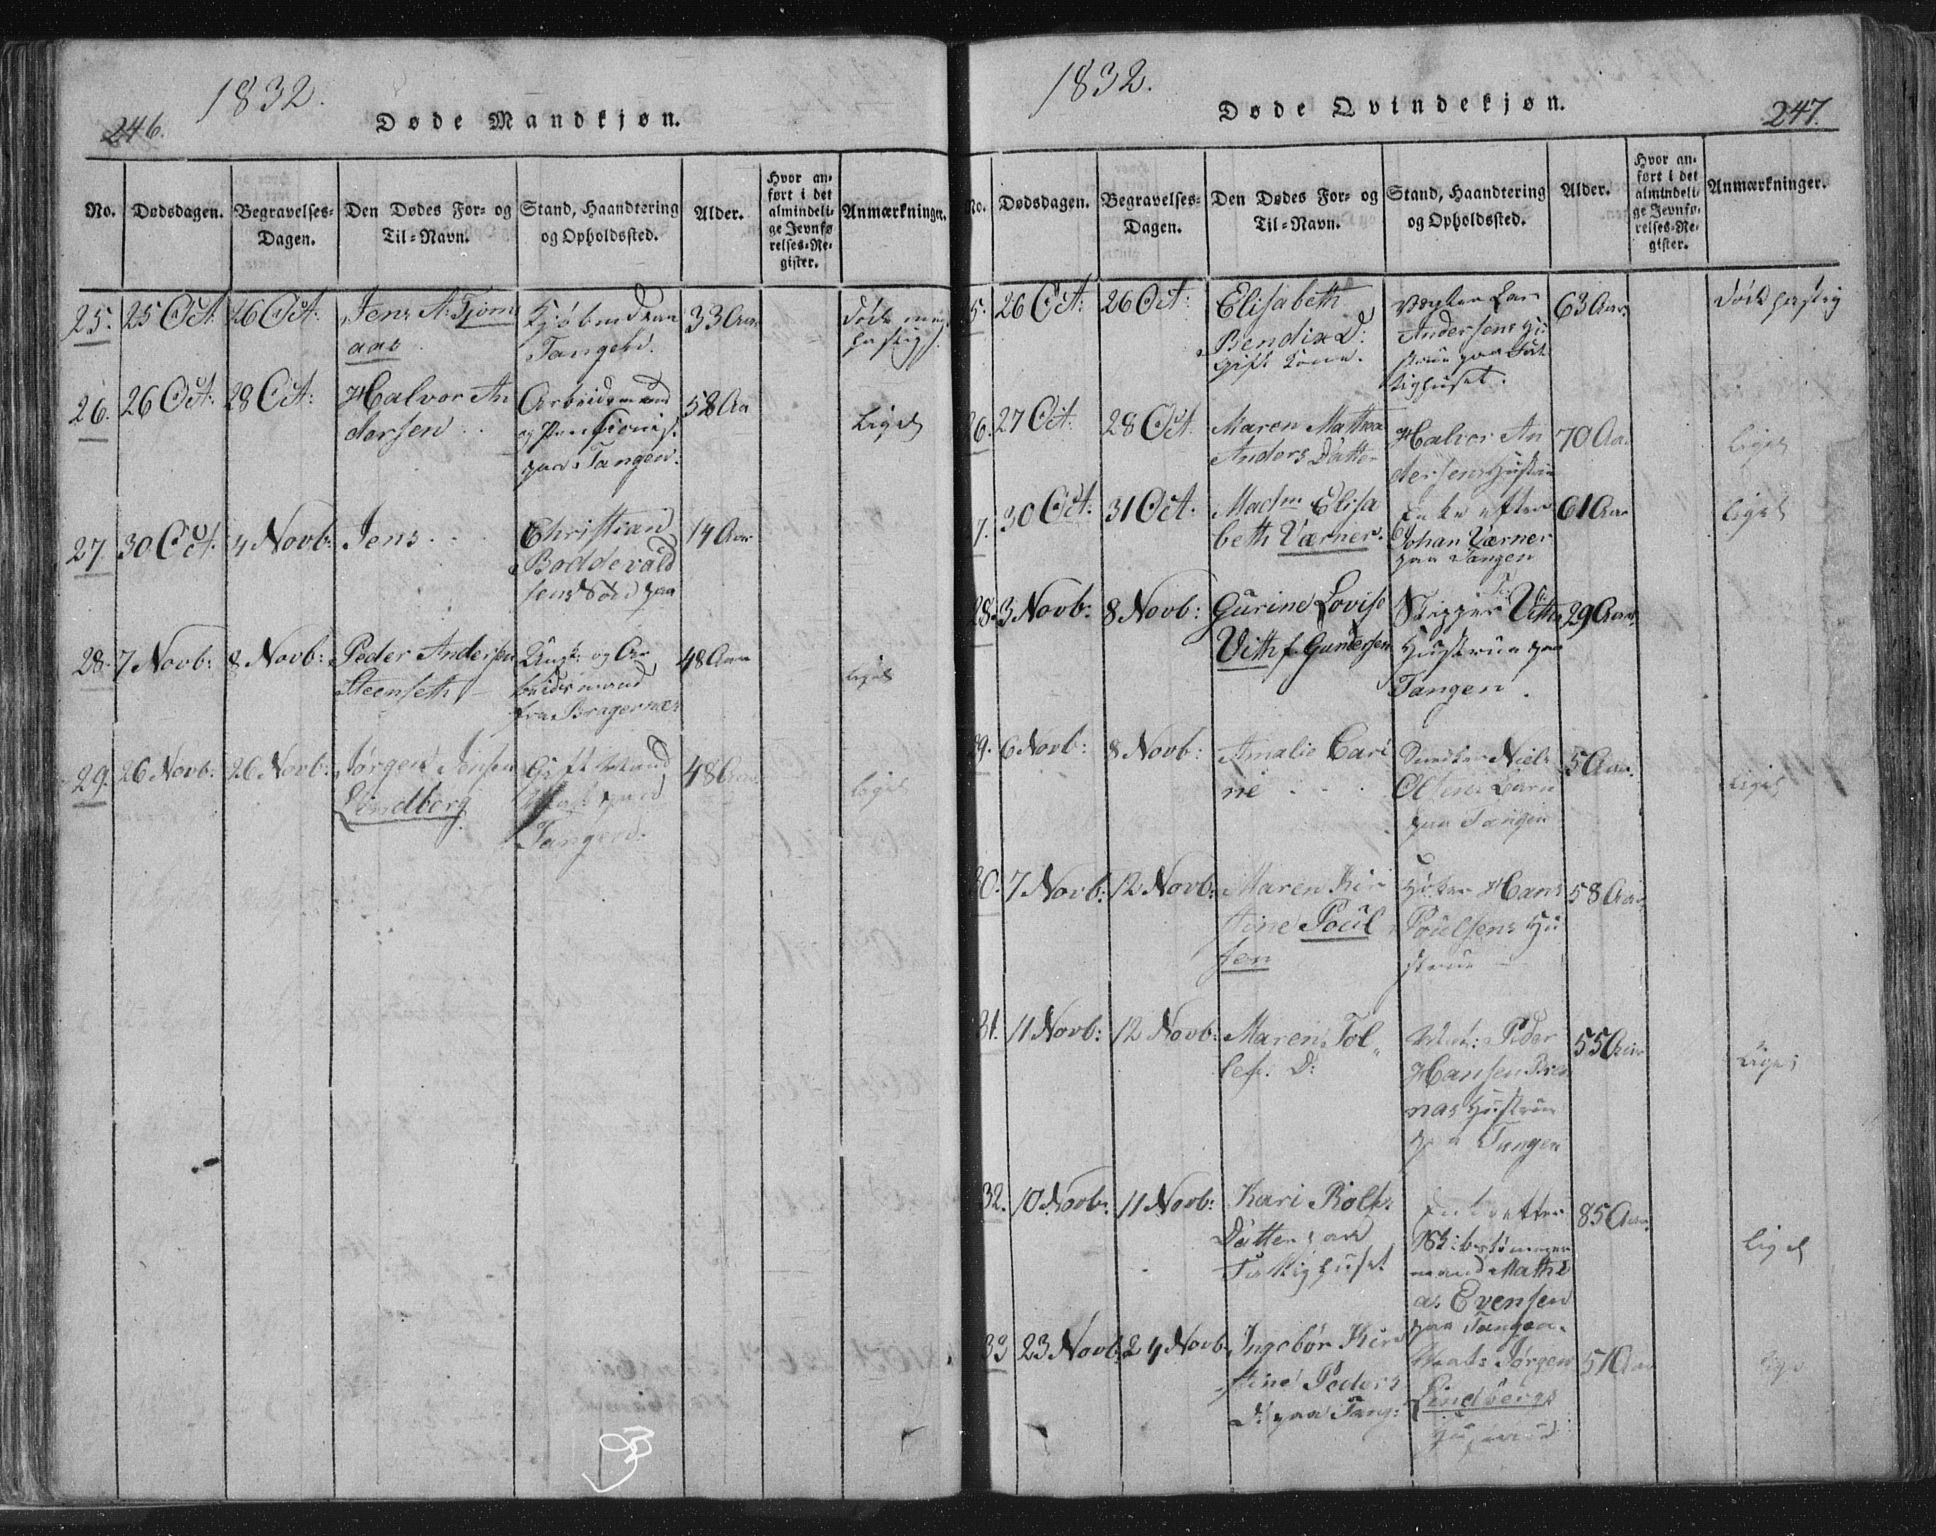 1832.
246.
Døde Mandkjøn.
No.
Dødsdagen.
Begravelses-
Dagen.
Den Dødes For- og
Til-Navn.
Stand, Haandtering
og Opholdssted.
Alder.
Hvor an-
ført i det
almindeli-
ge Jevnfø
relses-Re-
gister.
Anmærkninger.
25.
25 Oct.
26 Oct:
Jens A. Tjom
aas
Tangen.
33 Aar
26.
26 Oct.
28 Oct:
Halvor An
dersen
Arbeidsmand
og Pensionist
paa Tangen.
58 Aa
Liget
27
30 Oct.
4 Novb:
Jens
Christian
Boddevald
sens Søn paa
14 Aar
28.
7 Novb:
8 Novb:
Peder Andersen
Steenseth
og Ar
beidsmand
fra Bragernæs
48 Aar
liget
29.
26 Novb:
26 Novb:
Jørgen Jensen
Lindborg
Gift Mand
paa
Tangen.
48 Aar
liget
1832.
247.
Døde Qvindekjøn.
No.
Dødsdagen.
Begravelses-
Dagen.
Den Dødes For- og
Til-Navn.
Stand, Haandtering
og Opholdssted.
Alder.
Hvor an-
ført i det
almindeli-
ge Jevnfø-
relses-Re-
gister.
Anmærkninger.
5.
26 Oct:
26 Oct:
Elisabeth
Bendix D:
gift Kone.
Vægter Lar
Andersens Hu
strue paa Fat
tighuset.
63 Aar
Døde hastig
6.
27 Oct.
28 Oct.
Maren Mathea
Anders Datter
Halvor An
dersens Hustrue
70 Aa.
liget
7.
30 Oct.
31 Oct.
Madm Elisa
beth Værner.
Enke efter
Johan Værner
paa Tangen
61 Aar
liget
28.
3 Novb:
8 Novb:
Gurine Lovise
Vith f. Gundersen
Skipper Viths
Hustrue paa
Tangen.
29 Aar.
29.
6 Novb:
8 Novb:
Amalie Cari
ne
Niels
Olsens Barn
paa Tangen
5 Aar.
liget
30.
7 Novb:
12 Novb:
Maren Kir
stine Poul
sen
Høker Hans
Poulsens Hu
strue
58 Aar
31.
11 Novb:
12 Novb:
Maren Tol
lefs. D:
Peder
Hansen Bre
nas Hustrue
paa Tangen
55 Aar
Liget
32.
10 Novb:
11 Novb:
Kari Rolfs
Datter paa
Fattighuset
Enke efter
Skibstømmer
mand Mathi
as Evensen
paa Tangen.
85 Aar.
Liget
33
23 Novb.
24 Novb.
Ingebor Kir
stine Peders
D: paa Tang:
Jørgen
Lindbergs
51 Aar
lige